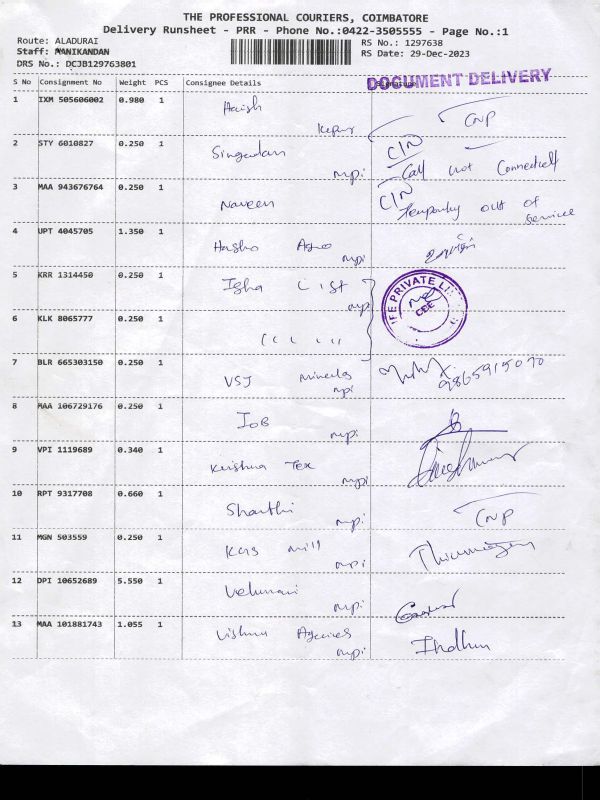 THE PROFESSIONAL COURIERS, COIMBATORE
Delivery Runsheet - PRR - Phone No.:0422-3505555 - Page No.:1
Route: ALADURAI
RS No.: 1297638
Staff: MANIKANDAN
RS Date: 29-Dec-2023
DRS No.: DCJB129763801
DOCUMENT DELIVERY
S No Consignment No Weight PCS Consignee Details Signature
1 IXM 505606002 0.980 1 Harish
CNP
2 STY 6010827 0.250 1 Singadan mpi C/N Call not Connected
3 MAA 943676764 0.250 1 Naveen C/N Temporary out of Service
4 UPT 4045705 1.350 1 Harsho Agro mpi
5 KRR 1314450 0.250 1 Isha List mpi
FE PRIVATE LI
CBE
6 KLK 8065777 0.250 1 " "
7 BLR 665303150 0.250 1 VSJ Minerals mpi 9865915070
8 MAA 106729176 0.250 1 IOB mpi
9 VPI 1119689 0.340 1 Krishna Tex mpi
10 RPT 9317708 0.660 1 Sharthi mpi CNP
11 MGN 503559 0.250 1 KRS mill mpi
12 DPI 10652689 5.550 1 Velumani mpi
13 MAA 101881743 1.055 1 Vishnu Agencies mpi Indhu